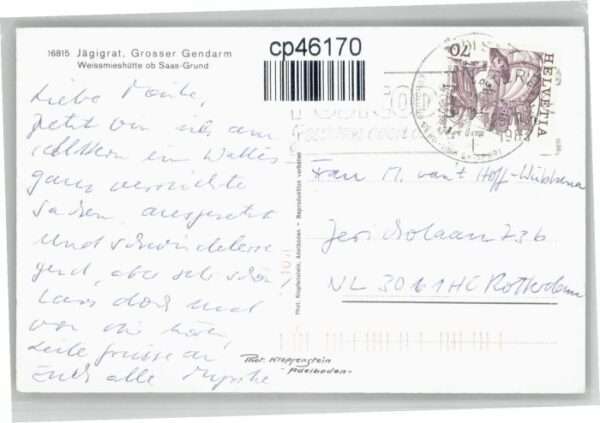 16815 Jägigrat, Grosser Gendarm
Weissmieshütte ob Saas-Grund
cp46170
70
HELVETIA
Liebe
jetzt bin ich am
klettern im Wallis
ganz verrückte
Sachen, ausgesetzt
und schwindelerre
gend, aber sehr schön
Lass doch mal
von dir hören,
Liebe Grüsse an
Euch alle
Frau M. van't Hoff-Wübbena
Jericholaan 73b
NL 3061 HC Rotterdam
Phot. Klopfenstein, Adelboden - Reproduktion verboten
Phot. Klopfenstein
-Adelboden-